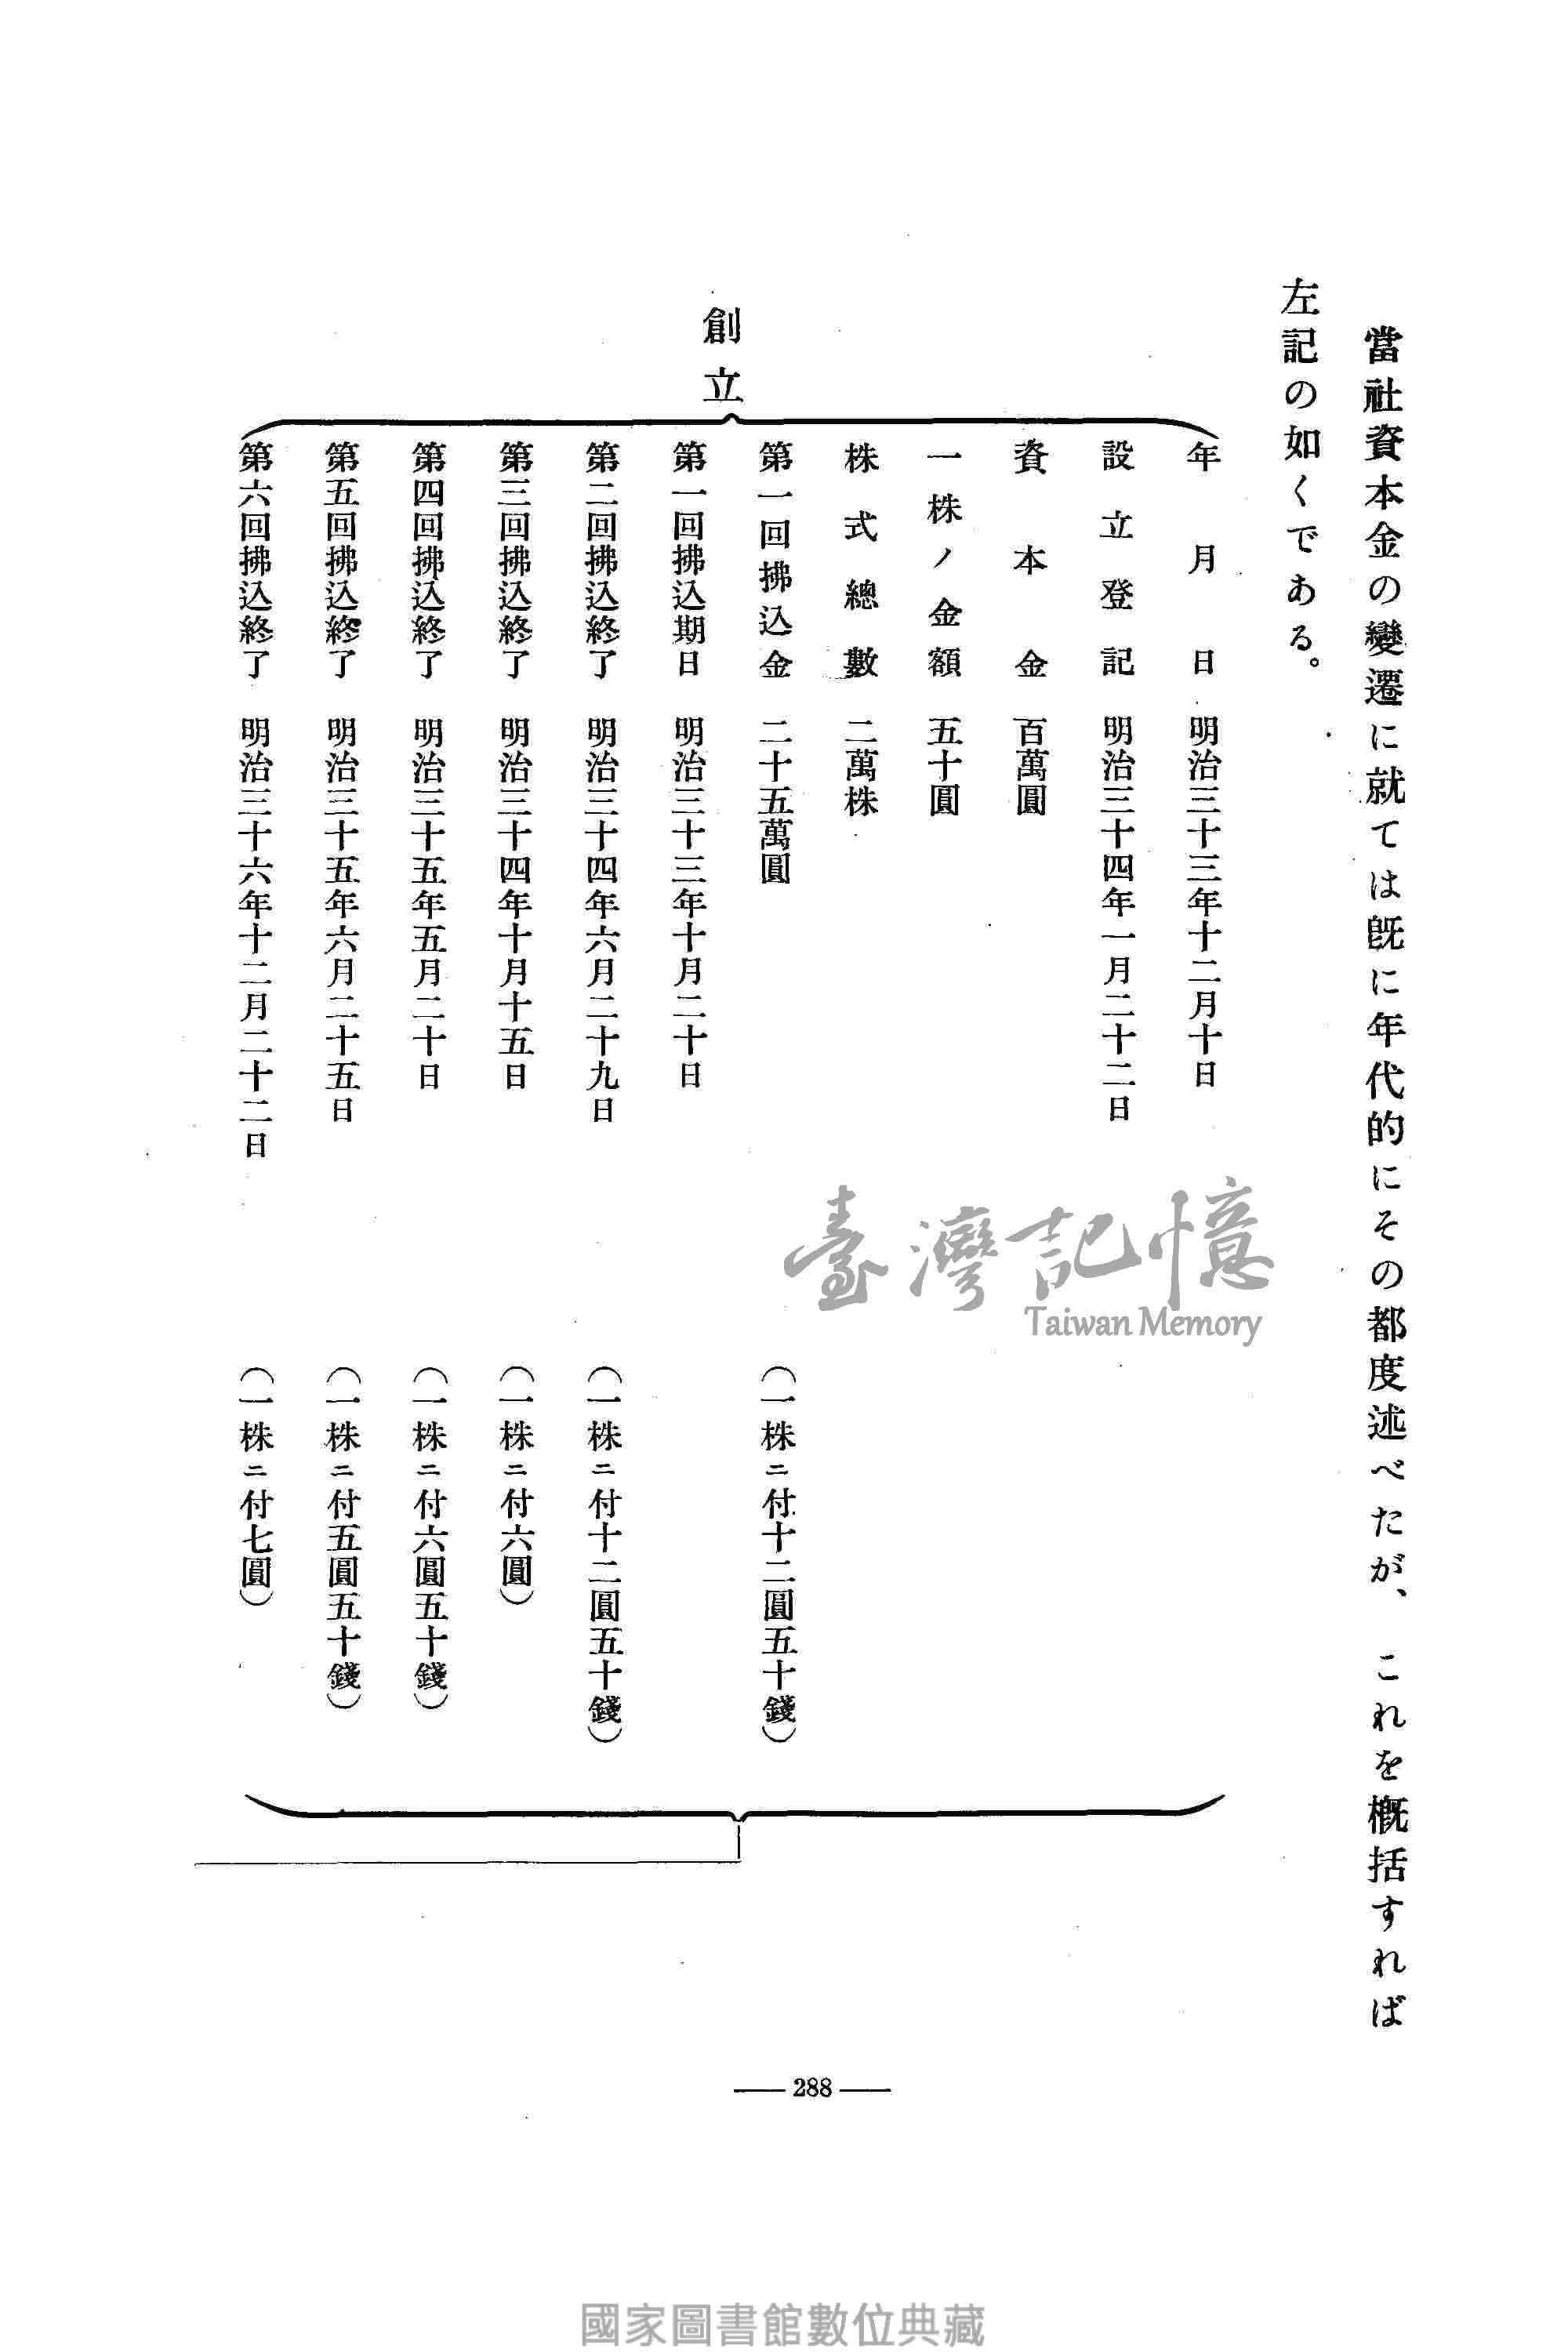 當社資本金の變遷に就ては既に年代的にその都度述べたが、これを概括すれば
左記の如くである。
創立
年月日 明治三十三年十二月十日
設立登記 明治三十四年一月二十二日
資本金 百萬圓
一株ノ金額 五十圓
株式總數 二萬株
第一回拂込金 二十五萬圓 (一株ニ付十二圓五十錢)
第一回拂込期日 明治三十三年十月二十日
第二回拂込終了 明治三十四年六月二十九日 (一株ニ付十二圓五十錢)
第三回拂込終了 明治三十四年十月十五日 (一株ニ付六圓)
第四回拂込終了 明治三十五年五月二十日 (一株ニ付六圓五十錢)
第五回拂込終了 明治三十五年六月二十五日 (一株ニ付五圓五十錢)
第六回拂込終了 明治三十六年十二月二十二日 (一株ニ付七圓)
臺灣記憶
Taiwan Memory
288
國家圖書館數位典藏